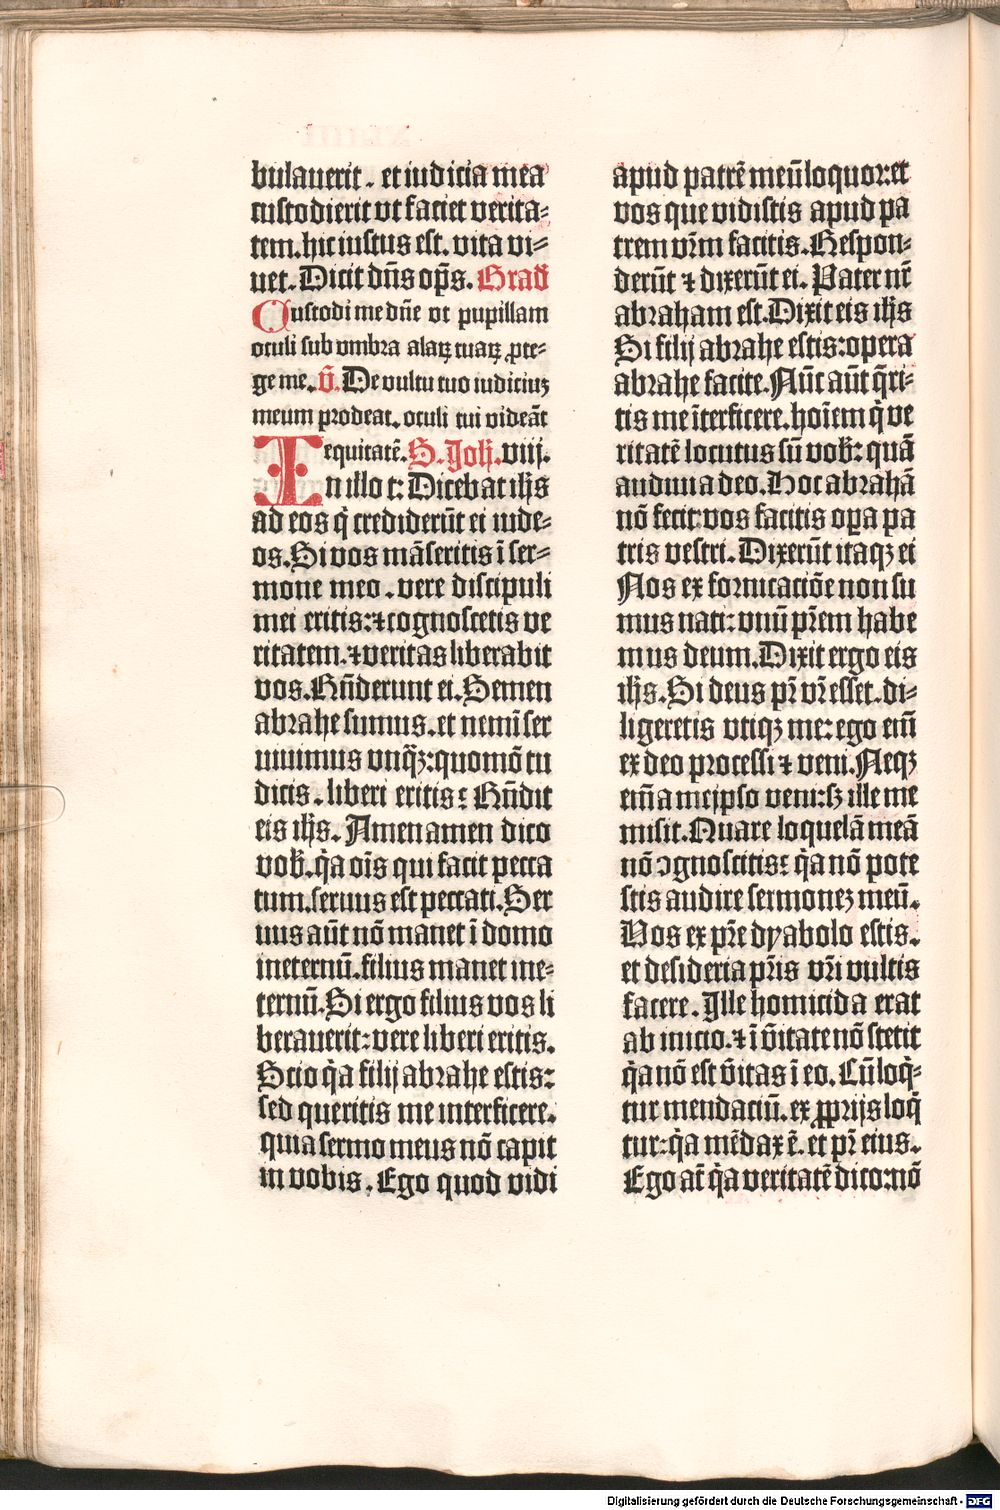 bulauerit . et iudicia mea
custodierit vt faciet verita⸗
tem. hic iustus est. vita vi⸗
uet. Dicit dn̄s op̄s. Grad̄
Custodi me dn̄e vt pupillam
oculi sub vmbra alaꝝ tuaꝝ ꝓte⸗
ge me. v̄. De vultu tuo iudiciuꝫ
meum prodeat. oculi tui videāt
equitatē. S. Joh. viij.
In illo t: Dicebat ih̄s
ad eos q̇ crediderūt ei iude⸗
os. Si vos māseritis ī ser⸗
mone meo . vere discipuli
mei eritis: ⁊ cognoscetis ve
ritatem. ⁊ veritas liberabit
vos. Rn̄derunt ei. Semen
abrahe sumus. et nemī ser
uiuimus vnq̄ꝫ: quomō tu
dicis . liberi eritis: Rn̄dit
eis ih̄s. Amen amen dico
vob̄. q̇a oīs qui facit pecca
tum. seruus est peccati. Ser
uus aūt nō manet ī domo
in eternū. filius manet in e⸗
ternū. Si ergo filius vos li
berauerit: vere liberi eritis.
Scio q̇a filij abrahe estis:
sed queritis me interficere.
quia sermo meus nō capit
in vobis . Ego quod vidi
apud patrē meū loquor: et
vos que vidistis apud pa
trem vr̄m facitis. Respon⸗
derūt ⁊ dixerūt ei. Pater nr̄
abraham est. Dixit eis ih̄s
Si filij abrahe estis: opera
abrahe facite. Nūc aūt q̄ri⸗
tis me īterficere. hoīem q̇ ve
ritatē locutus sū vob̄: quā
audiui a deo. Hoc abrahā
nō fecit: vos facitis oꝑa pa
tris vestri. Dixerūt itaqꝫ ei
Nos ex fornicaciōe non su
mus nati: vnū pr̄em habe
mus deum. Dixit ergo eis
ih̄s. Si deus pr̄ vr̄ esset . di⸗
ligeretis vtiqꝫ me: ego eni̅
ex deo processi ⁊ veni. Neqꝫ
eni̅ a meipso veni: sꝫ ille me
misit. Quare loquelā meā
nō ꝯgnoscitis: q̇a nō pote
stis audire sermonez meū.
Vos ex pr̄e dyabolo estis.
et desideria pr̄is vr̄i vultis
facere . Ille homicida erat
ab inicio. ⁊ ī v̄itate nō stetit
q̇a nō est v̄itas ī eo. Cū loq̇⸗
tur mendaciū. ex ꝓprijs loq̇
tur: q̇a mēdax ē. et pr̄ eius.
Ego at̄ q̇a veritatē dico: nō
Digitalisierung gefördert durch die Deutsche Forschungsgemeinschaft - DFG